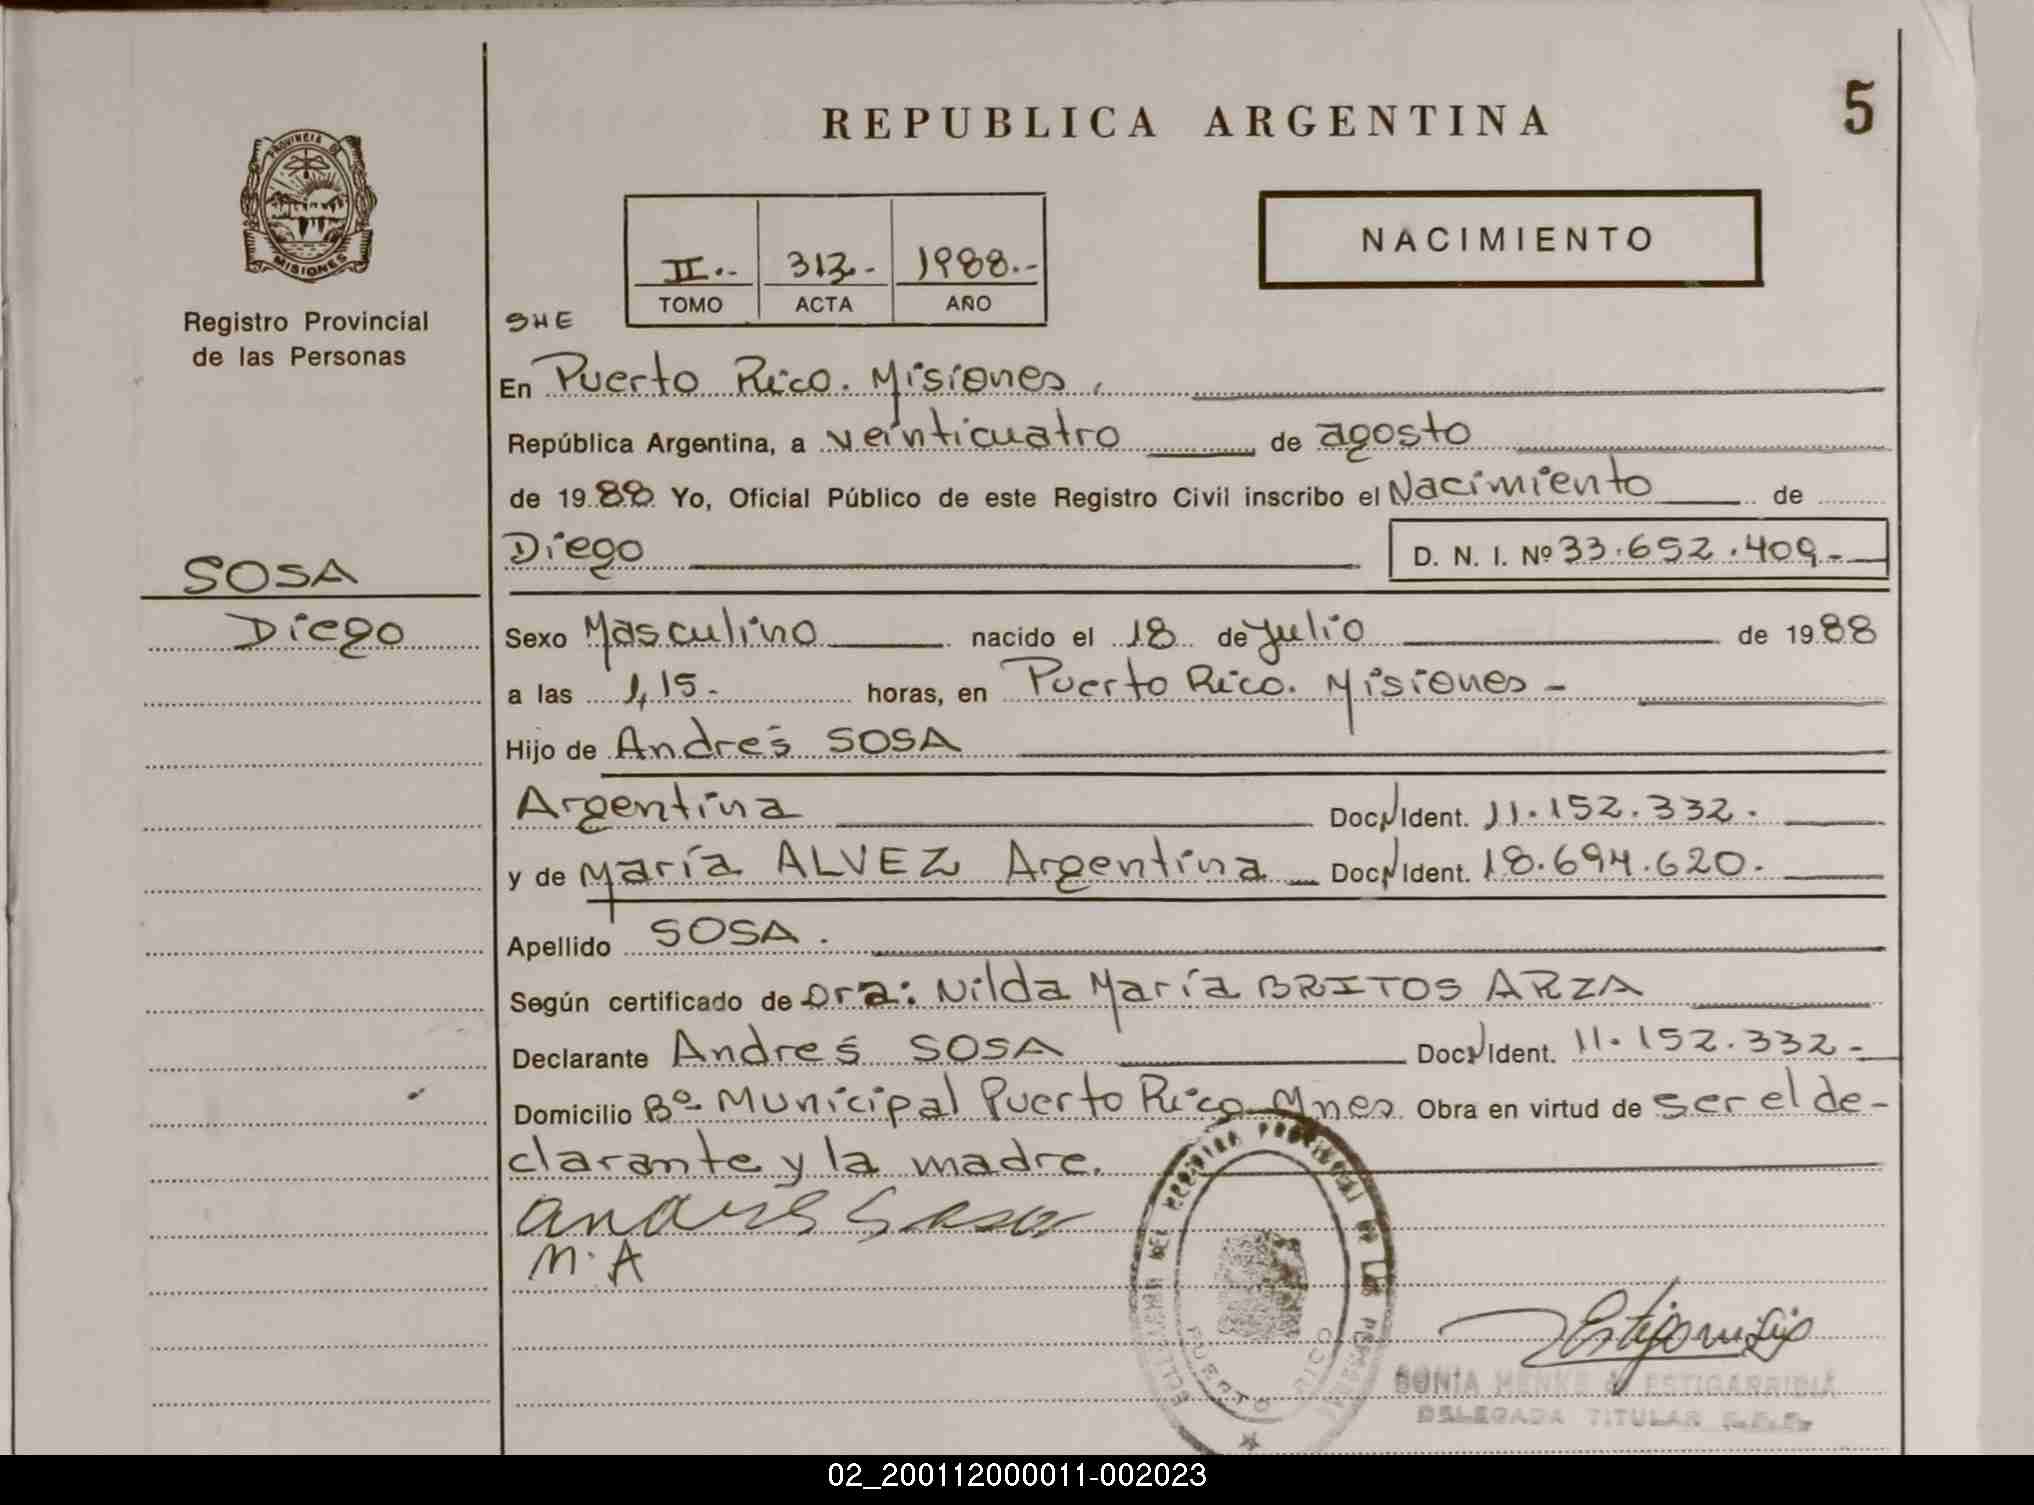 REPUBLICA ARGENTINA
5
PROVINCIA DE
MISIONES
Registro Provincial
de las Personas
NACIMIENTO
II.- 313.- 1988.-
TOMO ACTA AÑO
SHE
En Puerto Rico. Misiones,
República Argentina, a veinticuatro de agosto
de 1988 Yo, Oficial Público de este Registro Civil inscribo el Nacimiento de
Diego D. N. I. Nº 33.652.409.-
SOSA
Diego
Sexo Masculino nacido el 18 de Julio de 1988
a las 1,15.- horas, en Puerto Rico. Misiones -
Hijo de Andrés SOSA
Argentina Doc. Ident. 11.152.332.
y de María ALVEZ Argentina Doc. Ident. 18.694.620.
Apellido SOSA.
Según certificado de Dra: Nilda María BRITOS ARZA
Declarante Andrés SOSA Doc. Ident. 11.152.332.-
Domicilio Bº Municipal Puerto Rico Mnes. Obra en virtud de ser el de-
clarante y la madre.
Andres Sosa
M.A
PUERTO RICO
SONIA MENKE de ESTIGARRIBIA
DELEGADA TITULAR
02_200112000011-002023